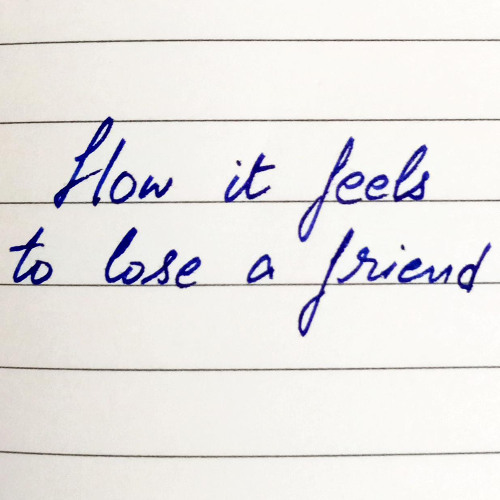 How it feels
to lose a friend